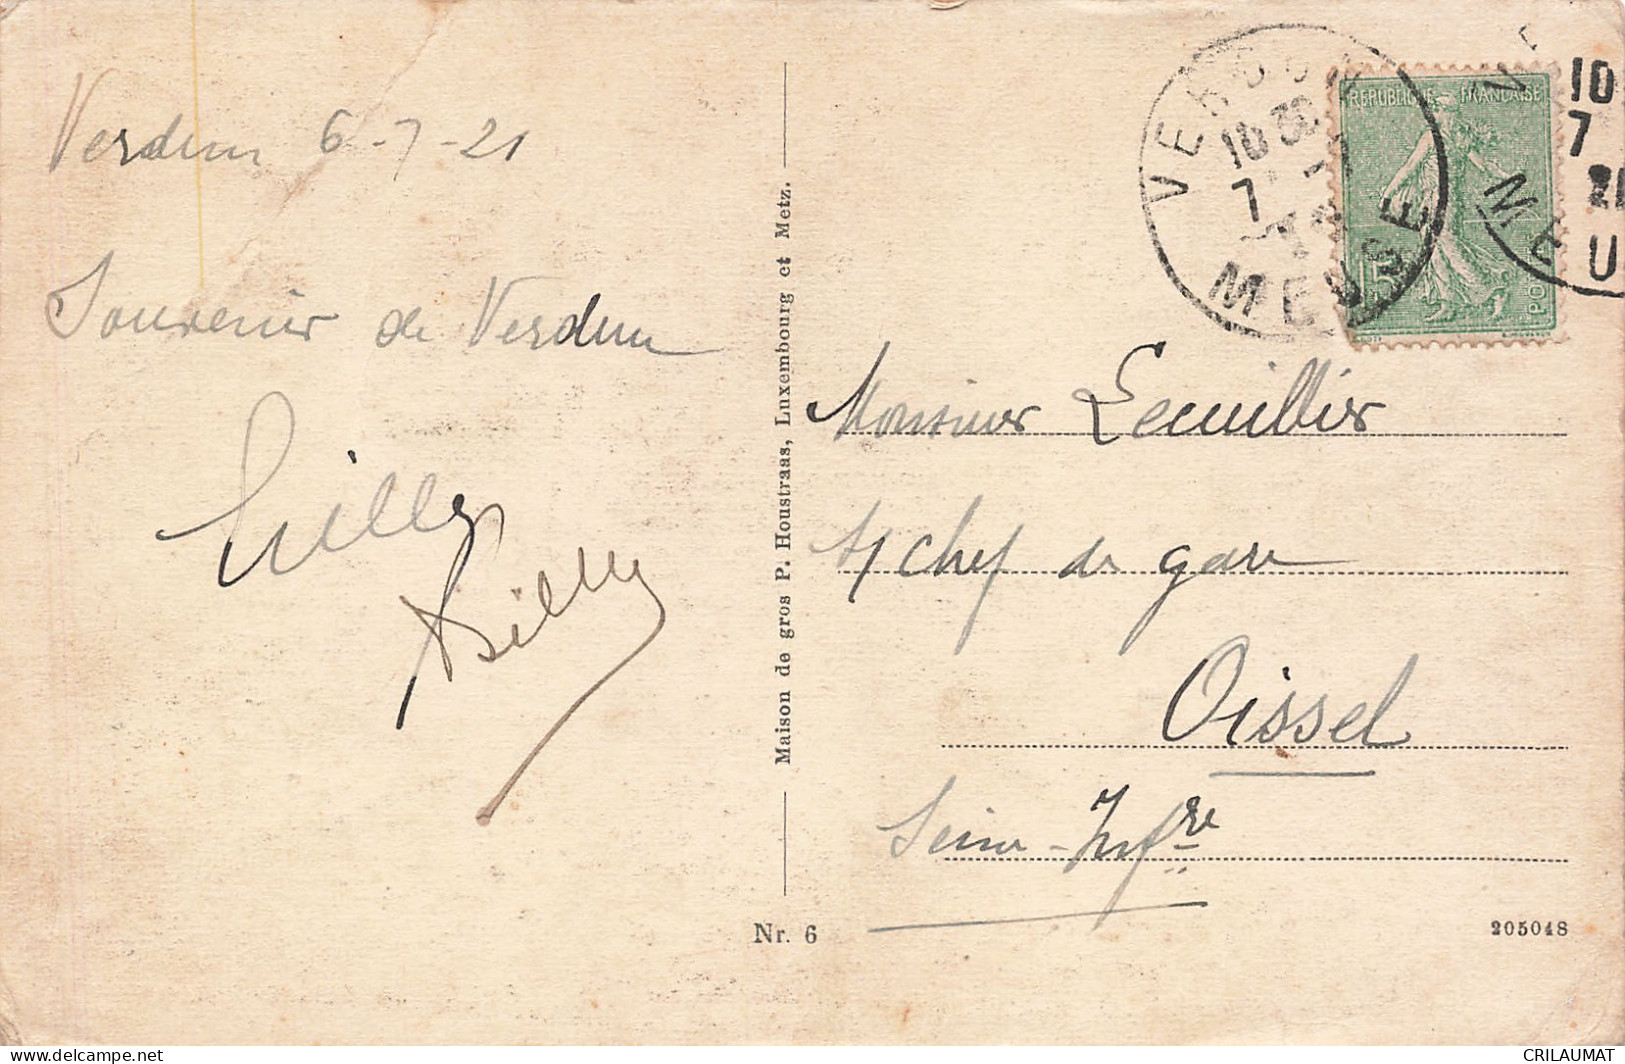 Verdun 6-7-21
Souvenir de Verdun
Maison de gros P. Houstraas, Luxembourg et Metz.
Nr. 6
VERDUN
10 30
7
MEUSE
REPUBLIQUE FRANÇAISE
15
PO
10
7
21
ME
U
Monsieur Lecuillier
s/ chef de gare
Oissel
Seine-Infre
205048
CRILAUMAT